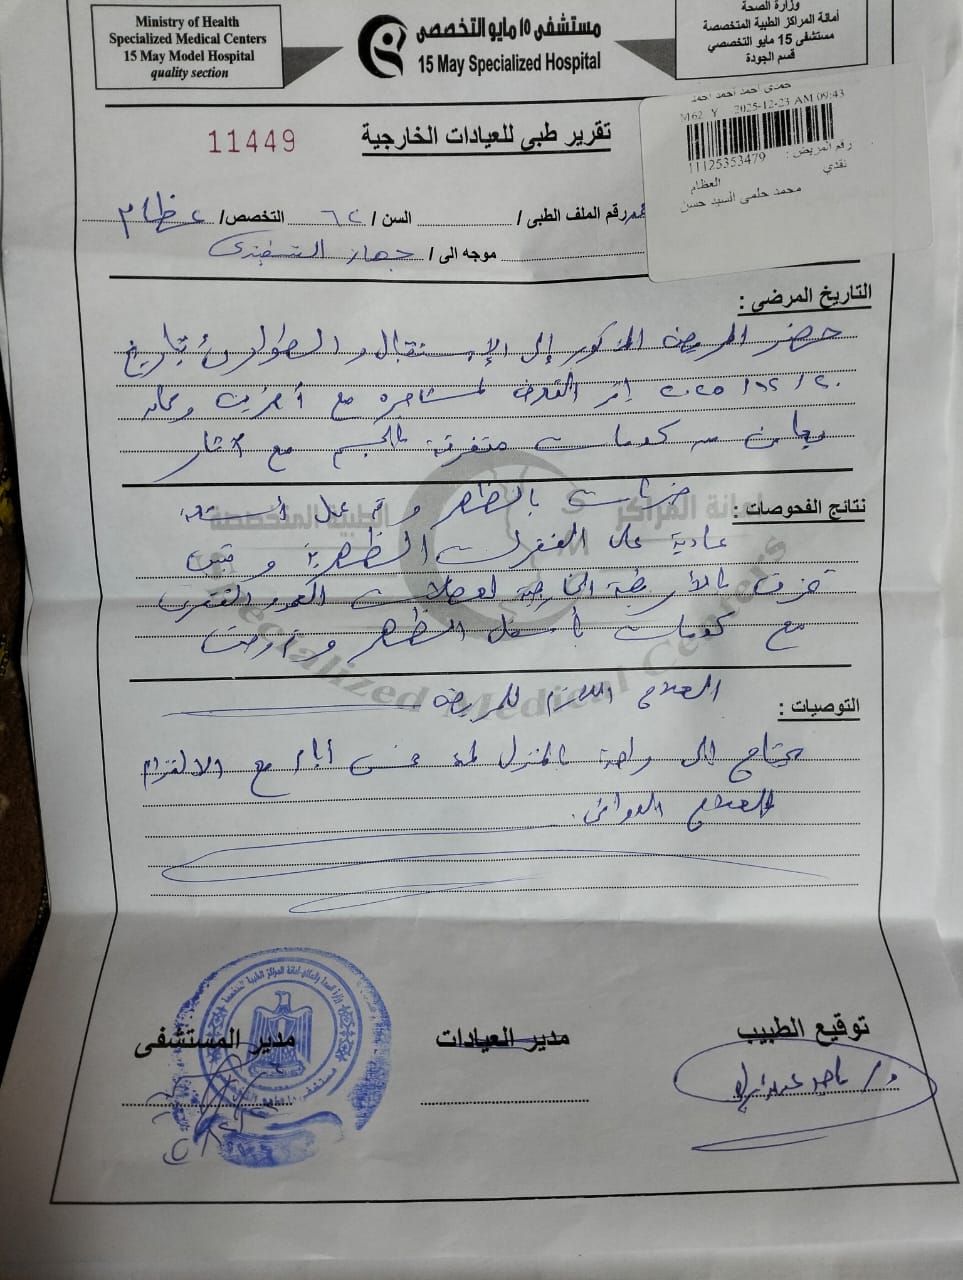 Ministry of Health
Specialized Medical Centers
15 May Model Hospital
quality section
مستشفى ١٥ مايو التخصصى
15 May Specialized Hospital
وزارة الصحة
أمانة المراكز الطبية المتخصصة
مستشفى 15 مايو التخصصي
قسم الجودة
حمدى احمد احمد احمد
M62 Y 2025-12-23 AM 09:43
رقم المريض :
11125353479
نقدي
العظام
محمد حلمى السيد حسن
11449
تقرير طبى للعيادات الخارجية
رقم الملف الطبى / السن / ٦٢ التخصص / عظام
موجه الى / جهاز
التاريخ المرضى :
حضر المريض المذكور إلى الإستقبال والطوارئ بتاريخ
٢٠ / ١٢ / ٢٠٢٥ إثر التعرض لمشاجرة مع آخرين وكان
يعانى من كدمات متفرقة بالجسم مع آثار
نتائج الفحوصات :
ضربات بالظهر وتم عمل أشعة
عادية على الفقرات الظهرية وتبين
تمزق بالأربطة الخارجية لعضلات العمود الفقرى
مع كدمات بأسفل الظهر
العلاج اللازم للمريض
التوصيات :
يحتاج إلى راحة بالمنزل لمدة خمس أيام مع الالتزام
بالعلاج الدوائى.
أمانة المراكز الطبية المتخصصة
Specialized Medical Centers
توقيع الطبيب
مدير العيادات
مدير المستشفى